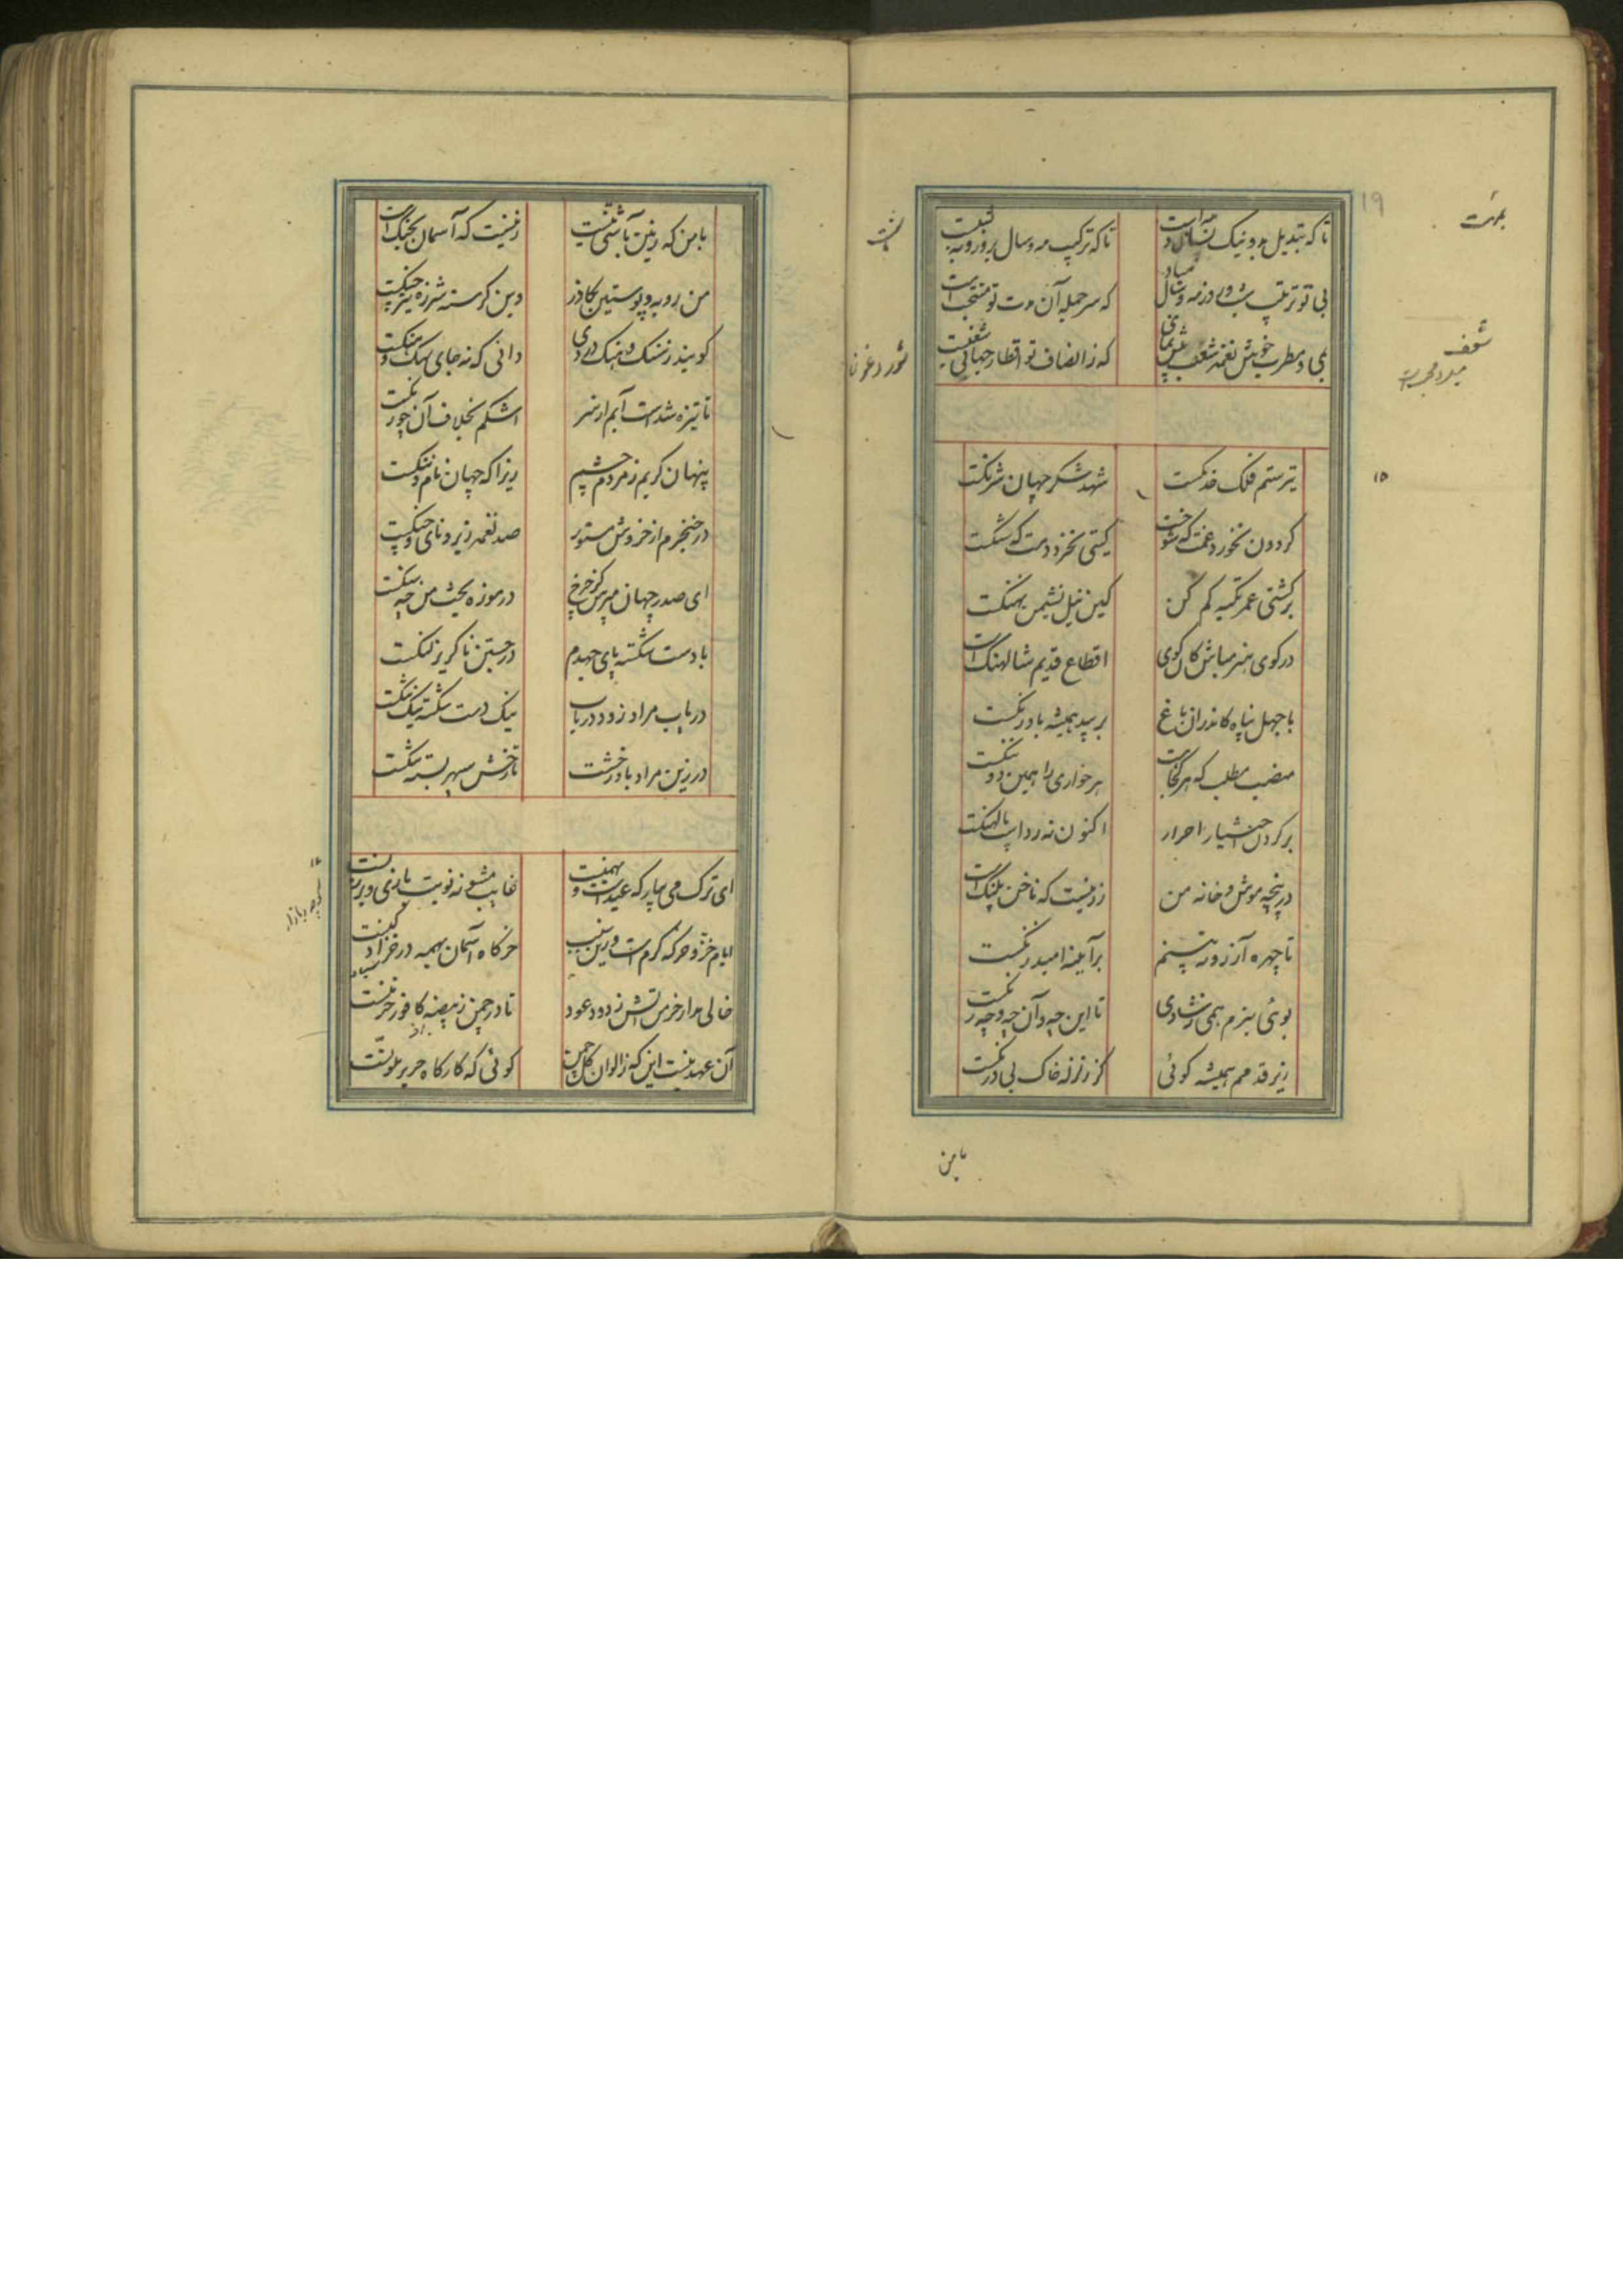 تا که تبدیل بد و نیک بسال و مه است
تا که ترکیب مه و سال بروز و بشبست
بی تو ترتیب شب و روز و مه و سال مباد
که سر جمله آن مدت تو منتخب است
می و مطرب خویش نغمه شغب پیش نمای
که ز انصاف تو اقطار جهان بی شغبست
تیر ستم فلک خدنگست
شهد شکر جهان شرنگست
گردون نخورد غمت که شوخست
گیتی نخرد دمت که شنگست
بر کشتی عمر تکیه کم کن
کین نیل نشیمن نهنگست
در کوی هنر مباش کان کوی
اقطاع قدیم شالهنگ است
با جهل پناه کاندران باغ
بر بید همیشه بادرنگست
منصب مطلب که هر کجا هست
هر خواری را همین دو ننگست
بر گردن اختیار احرار
اکنون نه ردا که پالهنگست
در پنجه موش خانه من
زر نیست که ناخن پلنگ است
تا چهره آرزو نبینم
بر آینه امید زنگست
بوئی نبرم همی ز شادی
تا این چه و آن چه و چه رنگست
زیر قدمم همیشه گوئی
کز زلزله خاک بی درنگست
با من که زمین بآشتی نیست
زین نیست که آسمان بجنگ است
من روبه و پوستین بگازر
وین گرسنه شرزه تیز چنگست
گویند ز سنگ و هنگ دوری
دانی که نه جای هنگ و سنگست
تا تیره شدست آبم از سر
اشکم بخلاف آن چو زنگست
پنهان گریم ز مردم چشم
زیرا که جهان نام و ننگست
در حنجرم از خروش مستور
صد نغمه زیر و نای و چنگست
ای صدر جهان مپرس کز چرخ
در موزه بخت من چه سنگست
با دست شکسته پای جهدم
در جستن ناگزیر لنگست
دریاب مرا و زود دریاب
یک دست شکسته نیک تنگست
در زین مراد باد رخشت
تا رخش سپهر بسته تنگست
ای ترک می بیار که عیدست و بهمنست
غایب مشو نه نوبت بازی و برزنست
ایام خز و خرگه گرم است و زین سبب
خرگاه آسمان همه در خز ادکنست
خالی مدار خرمن آتش ز دود عود
تا در چمن ز بیضه کافور خرمنست
آن عهد نیست این که ز الوان گل چمن
گوئی که کارگاه حریر ملونست
۱۹
شغف
۱۵
شور و غوغا
با من